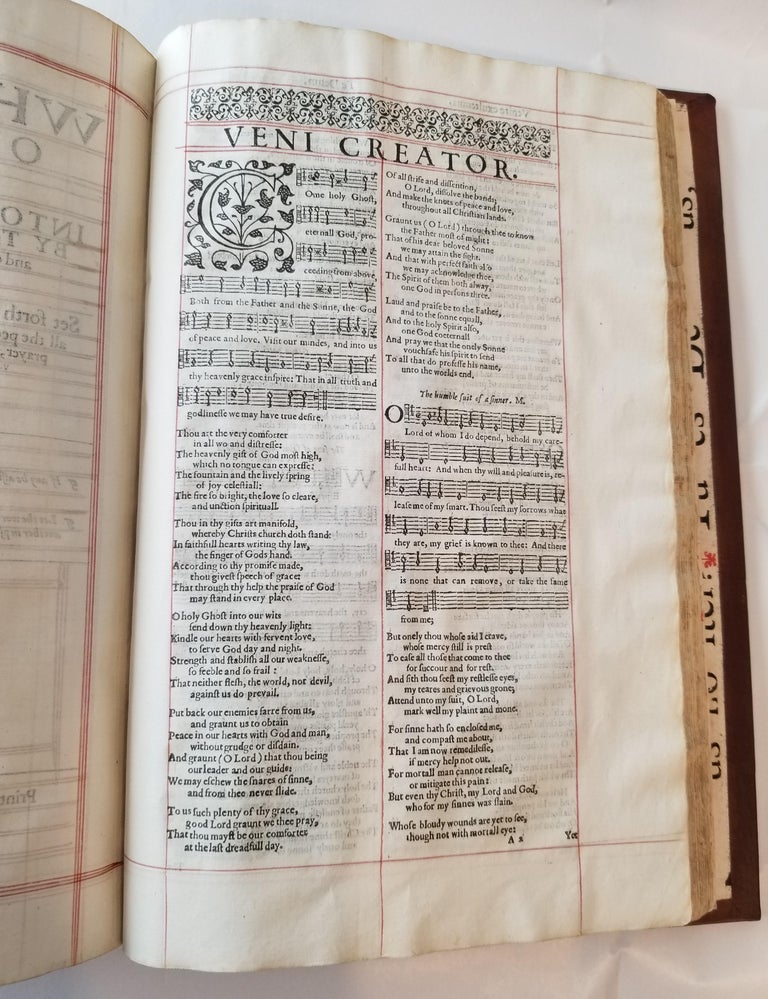 VENI CREATOR.
COme holy Ghost,
eternall God, pro-
ceeding from above,
Both from the Father and the Sonne, the God
of peace and love. Visit our mindes, and into us
thy heavenly grace inspire: That in all truth and
godlinesse we may have true desire.
Thou art the very comforter
in all wo and distresse:
The heavenly gift of God most high,
which no tongue can expresse:
The fountain and the lively spring
of joy celestiall:
The fire so bright, the love so cleare,
and unction spirituall.
Thou in thy gifts art manifold,
whereby Christs church doth stand:
In faithfull hearts writing thy law,
the finger of Gods hand.
According to thy promise made,
thou givest speech of grace:
That through thy help the praise of God
may stand in every place.
O holy Ghost into our wits
send down thy heavenly light:
Kindle our hearts with fervent love,
to serve God day and night.
Strength and stablish all our weaknesse,
so feeble and so frail:
That neither flesh, the world, nor devil,
against us do prevail.
Put back our enemies farre from us,
and graunt us to obtain
Peace in our hearts with God and man,
without grudge or disdain.
And graunt (O Lord) that thou being
our leader and our guide:
We may eschew the snares of sinne,
and from thee never slide.
To us such plenty of thy grace,
good Lord graunt we thee pray,
That thou mayst be our comforter
at the last dreadfull day.
Of all strife and dissention,
O Lord, dissolve the bands;
And make the knots of peace and love,
throughout all Christian lands.
Graunt us (O Lord) through thee to know
the Father most of might:
That of his dear beloved Sonne
we may attain the sight.
And that with perfect faith also
we may acknowledge thee,
The Spirit of them both alway,
one God in persons three.
Laud and praise be to the Father,
and to the sonne equall,
And to the holy Spirit also,
one God coeternall
And pray we that the onely Sonne
vouchsafe his spirit to send
To all that do professe his name,
unto the worlds end.
The humble suit of a sinner. M.
O Lord of whom I do depend, behold my care-
full heart: And when thy will and pleasure is, re-
lease me of my smart. Thou seest my sorrows what
they are, my grief is known to thee: And there
is none that can remove, or take the same
from me;
But onely thou whose aid I crave,
whose mercy still is prest
To ease all those that come to thee
for succour and for rest.
And sith thou seest my restlesse eyes,
my teares and grievous grone;
Attend unto my suit, O Lord,
mark well my plaint and mone.
For sinne hath so enclosed me,
and compast me about,
That I am now remedilesse,
if mercy help not out.
For mortall man cannot release,
or mitigate this pain:
But even thy Christ, my Lord and God,
who for my sinnes was slain.
Whose bloudy wounds are yet to see,
though not with mortall eye:
A 2 Yet